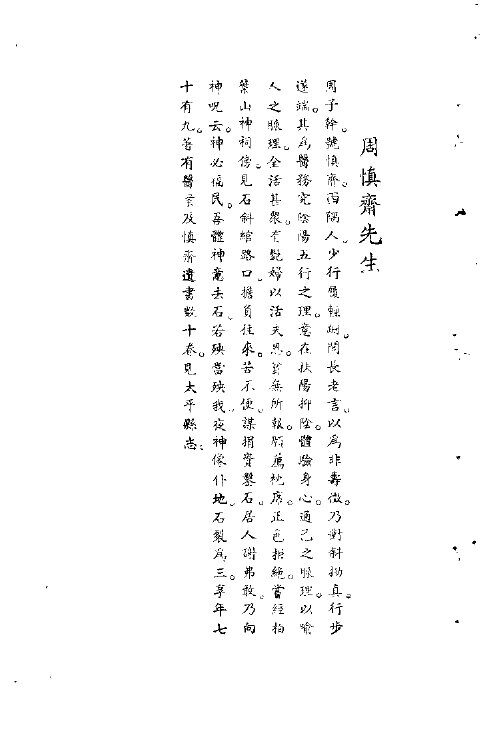 周慎齋先生
周子幹。號慎齋。西隅人。少行質輕翩。聞長老言。以為非壽徵。乃對斜拗真。行步
遂端。其為醫務究陰陽五行之理。意在扶陽抑陰。體驗身心。通己之脈理。以喻
人之脈理。全活甚衆。有艷婦以活夫恩。貧無所報。願薦枕席。正色拒絶。嘗經柏
葉山神祠傍。見石斜綰路口。擔負往來。苦不便。謀捐資鑿石。居人謝弗敢。乃向
神呪云。神必福民。吾體神意去石。若殃當殃我。夜神像仆地。石裂為三。享年七
十有九。著有醫案及慎齋遺書數十卷。見太平縣志。